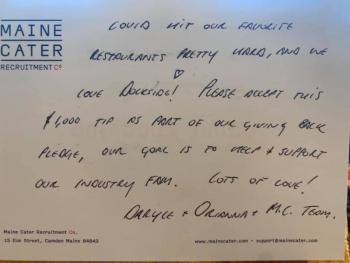 MAINE
CATER
RECRUITMENT Co.
COVID HIT OUR FAVORITE
RESTAURANTS PRETTY HARD, AND WE
LOVE DOCKSIDE! PLEASE ACCEPT THIS
$1,000 TIP AS PART OF OUR GIVING BACK
PLEDGE, OUR GOAL IS TO HELP & SUPPORT
OUR INDUSTRY FAM. LOTS OF LOVE!
DARYLE + ORIANNA + M.C. TEAM.
Maine Cater Recruitment Co.
15 Elm Street, Camden Maine 04843
www.mainecater.com - support@mainecater.com